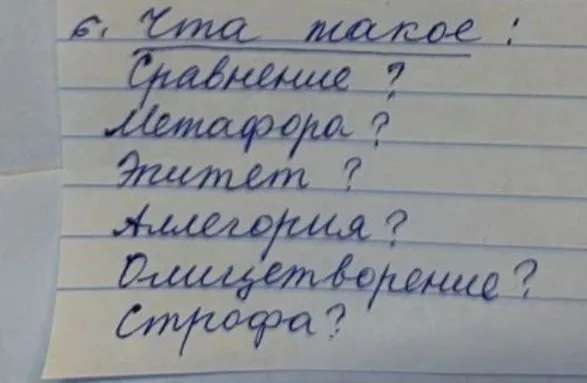 6. Что такое:
Сравнение?
Метафора?
Эпитет?
Аллегория?
Олицетворение?
Строфа?